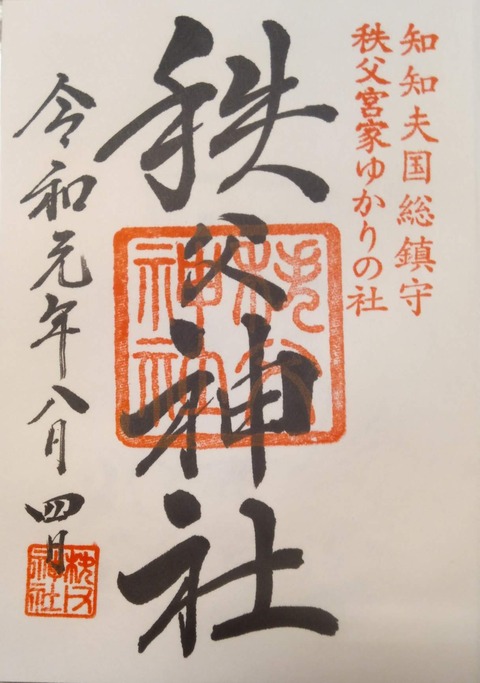 知知夫国総鎮守
秩父宮家ゆかりの社
秩父神社
秩父神社
令和元年八月四日
秩父神社